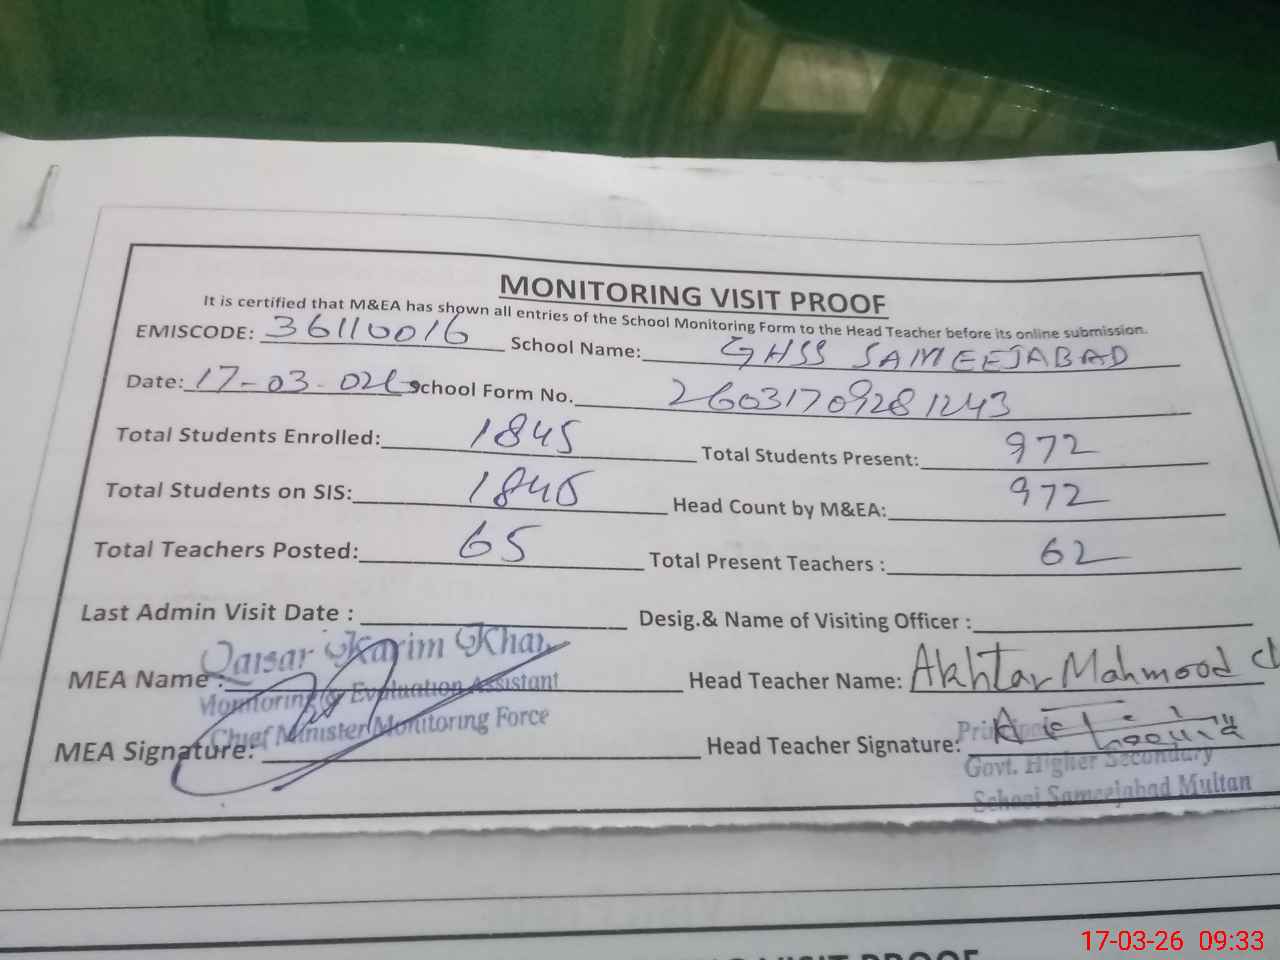 MONITORING VISIT PROOF
It is certified that M&EA has shown all entries of the School Monitoring Form to the Head Teacher before its online submission.
EMISCODE: 36110016 School Name: GHSS SAMEEJABAD
Date: 17-03-026 School Form No. 260317092811243
Total Students Enrolled: 1845 Total Students Present: 972
Total Students on SIS: 1845 Head Count by M&EA: 972
Total Teachers Posted: 65 Total Present Teachers : 62
Last Admin Visit Date : Desig.& Name of Visiting Officer :
Qaisar Karim Khan
MEA Name : Head Teacher Name: Akhtar Mahmood
Monitoring & Evaluation Assistant
Chief Minister Monitoring Force
MEA Signature: Head Teacher Signature:
Principal
Govt. Higher Secondary
School Sameejabad Multan
VISIT PROOF
17-03-26 09:33